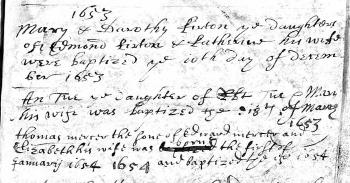 1653
Mary & Dorothy Kirton ye daughters
of Edmond Kirton & Katherine his wife
were baptized ye 10th day of decem
ber 1653
An Tue ye daughter of Tue & Mary
his wife was baptized ye 18th of
1653
thomas mercer the sone of Edward mercer and
Elizabeth his wife was borne the first of
January 1654 1654 and baptized the 1654